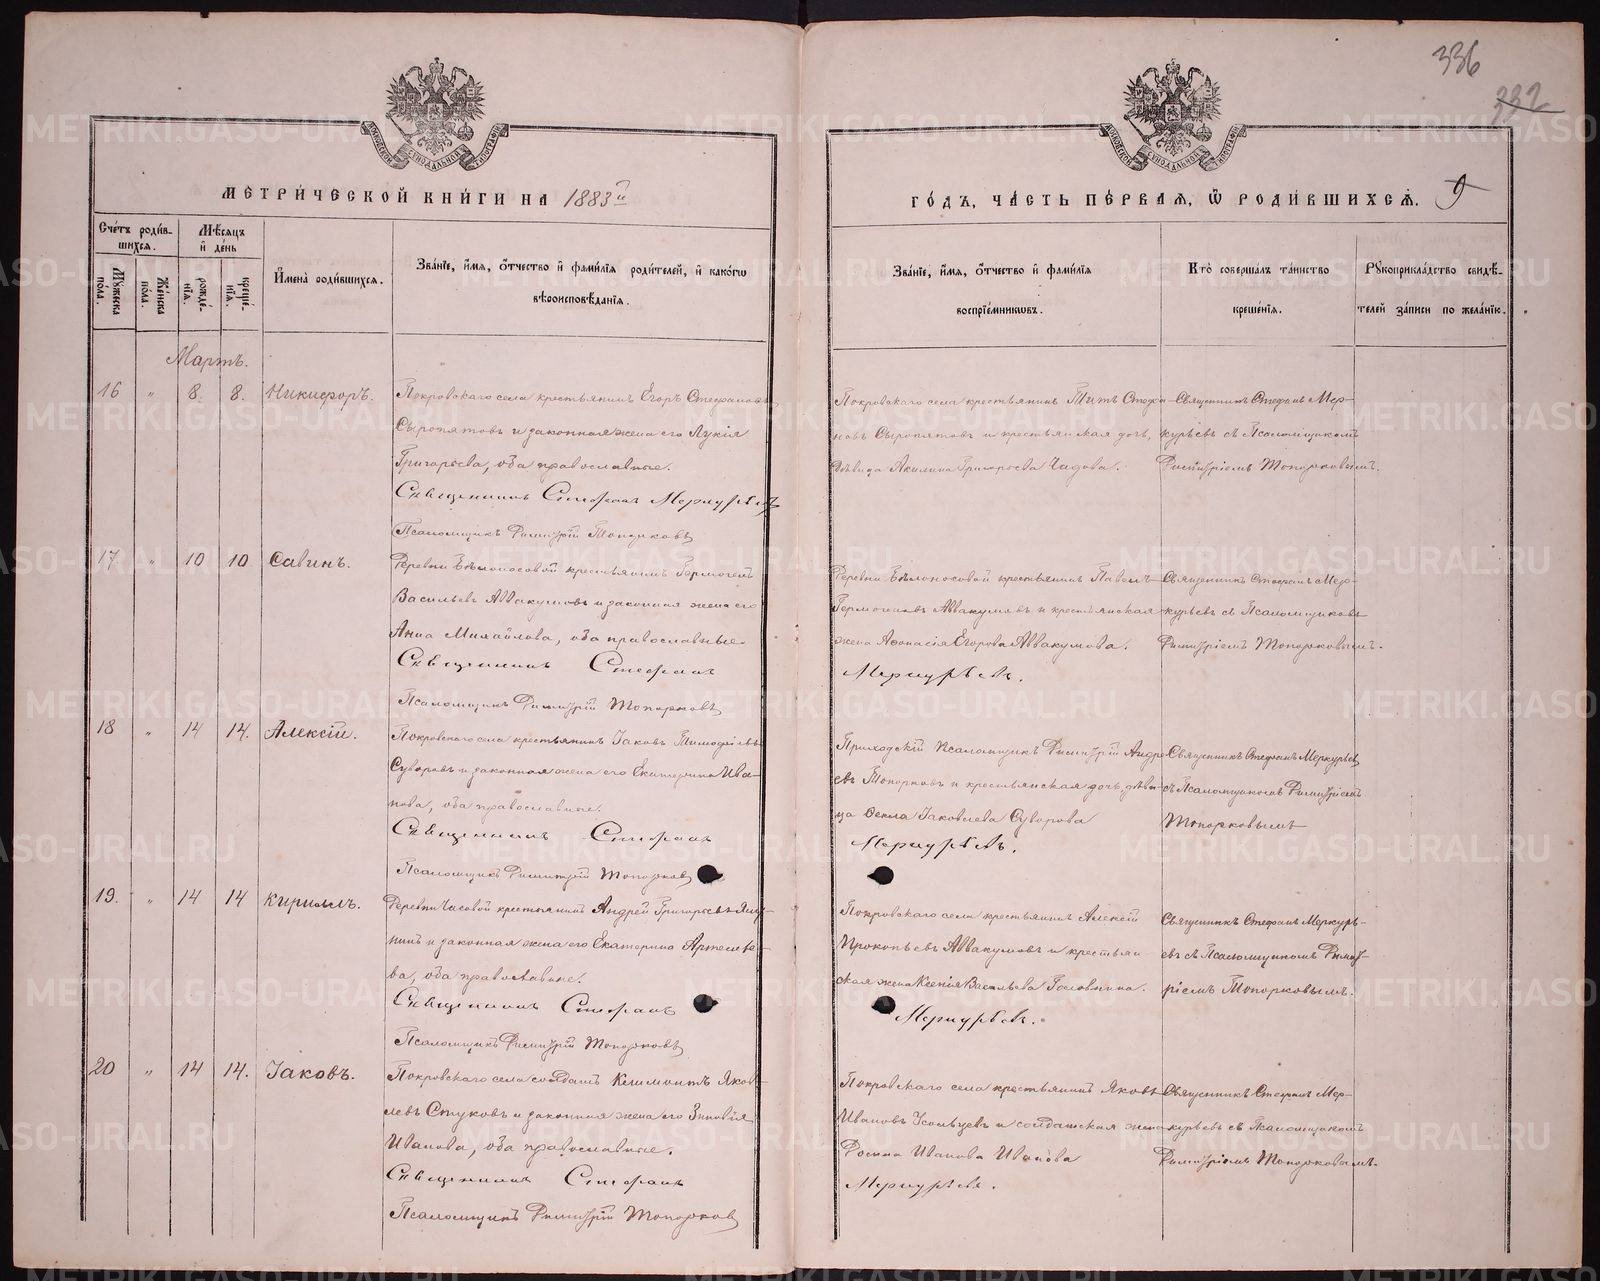 336
382
МЕТРИЧЕСКОЙ КНИГИ НА 1883й
ГОДЪ, ЧАСТЬ ПЕРВАЯ, Ѡ РОДИВШИХСЯ.
9
Счетъ родившихся.
Мужеска пола.
Женска пола.
Мѣсяцъ и день
рожденія.
крещенія.
Имена родившихся.
Званіе, имя, отчество и фамилія родителей, и какогѡ вѣроисповѣданія.
Званіе, имя, отчество и фамилія воспріемниковъ.
Кто совершалъ таинство крещенія.
Рукоприкладство свидѣтелей записи по желанію.
Мартъ.
16 " 8. 8. Никифоръ.
Покровскаго села крестьянинъ Егоръ Стефановъ
Сыропятовъ и законная жена его Лукія
Григорьева, оба православные.
Священникъ Стефанъ Меркурьевъ
Псаломщикъ Димитрій Топорковъ
Покровскаго села крестьянинъ Титъ Стефа-
новъ Сыропятовъ и крестьянская дочь,
дѣвица Акилина Григорьева Чадова.
Священникъ Стефанъ Мер-
курьевъ съ Псаломщикомъ
Димитріемъ Топорковымъ.
17 " 10 10 Савинъ.
Деревни Бѣлоносовой крестьянинъ Гермогенъ
Васильевъ Аввакумовъ и законная жена его
Анна Михайлова, оба православные.
Священникъ Стефанъ
Псаломщикъ Димитрій Топорковъ
Деревни Бѣлоносовой крестьянинъ Павелъ
Гермогеновъ Аввакумовъ и крестьянская
жена Афанасія Егорова Аввакумова.
Меркурьевъ.
Священникъ Стефанъ Мер-
курьевъ съ Псаломщикомъ
Димитріемъ Топорковымъ.
18 " 14 14. Алексій.
Покровскаго села крестьянинъ Іаковъ Тимофеевъ
Суворовъ и законная жена его Екатерина Ива-
нова, оба православные.
Священникъ Стефанъ
Псаломщикъ Димитрій Топорковъ
Приходскій Псаломщикъ Димитрій Андре-
евъ Топорковъ и крестьянская дочь, дѣви-
ца Ѳекла Іаковлева Суворова
Меркурьевъ.
Священникъ Стефанъ Меркурьевъ
съ Псаломщикомъ Димитріемъ
Топорковымъ
19. " 14 14 Кириллъ.
Деревни Часовой крестьянинъ Андрей Григорьевъ
и законная жена его Екатерина Артемье-
ва, оба православные.
Священникъ Стефанъ
Псаломщикъ Димитрій Топорковъ
Покровскаго села крестьянинъ Алексій
Прокопьевъ Аввакумовъ и крестьян-
ская жена Ксенія Васильева Головнина.
Меркурьевъ.
Священникъ Стефанъ Меркурь-
евъ съ Псаломщикомъ Димит-
ріемъ Топорковымъ.
20 " 14 14. Іаковъ.
Покровскаго села солдатъ Климонтъ Яков-
левъ Стуковъ и законная жена его Зиновія
Иванова, оба православные.
Священникъ Стефанъ
Псаломщикъ Димитрій Топорковъ
Покровскаго села крестьянинъ Яковъ
Ивановъ Усольцевъ и солдатская жена
Иванова Иванова
Меркурьевъ.
Священникъ Стефанъ Мер-
курьевъ съ Псаломщикомъ
Димитріемъ Топорковымъ.
METRIKI.GASO-URAL.RU